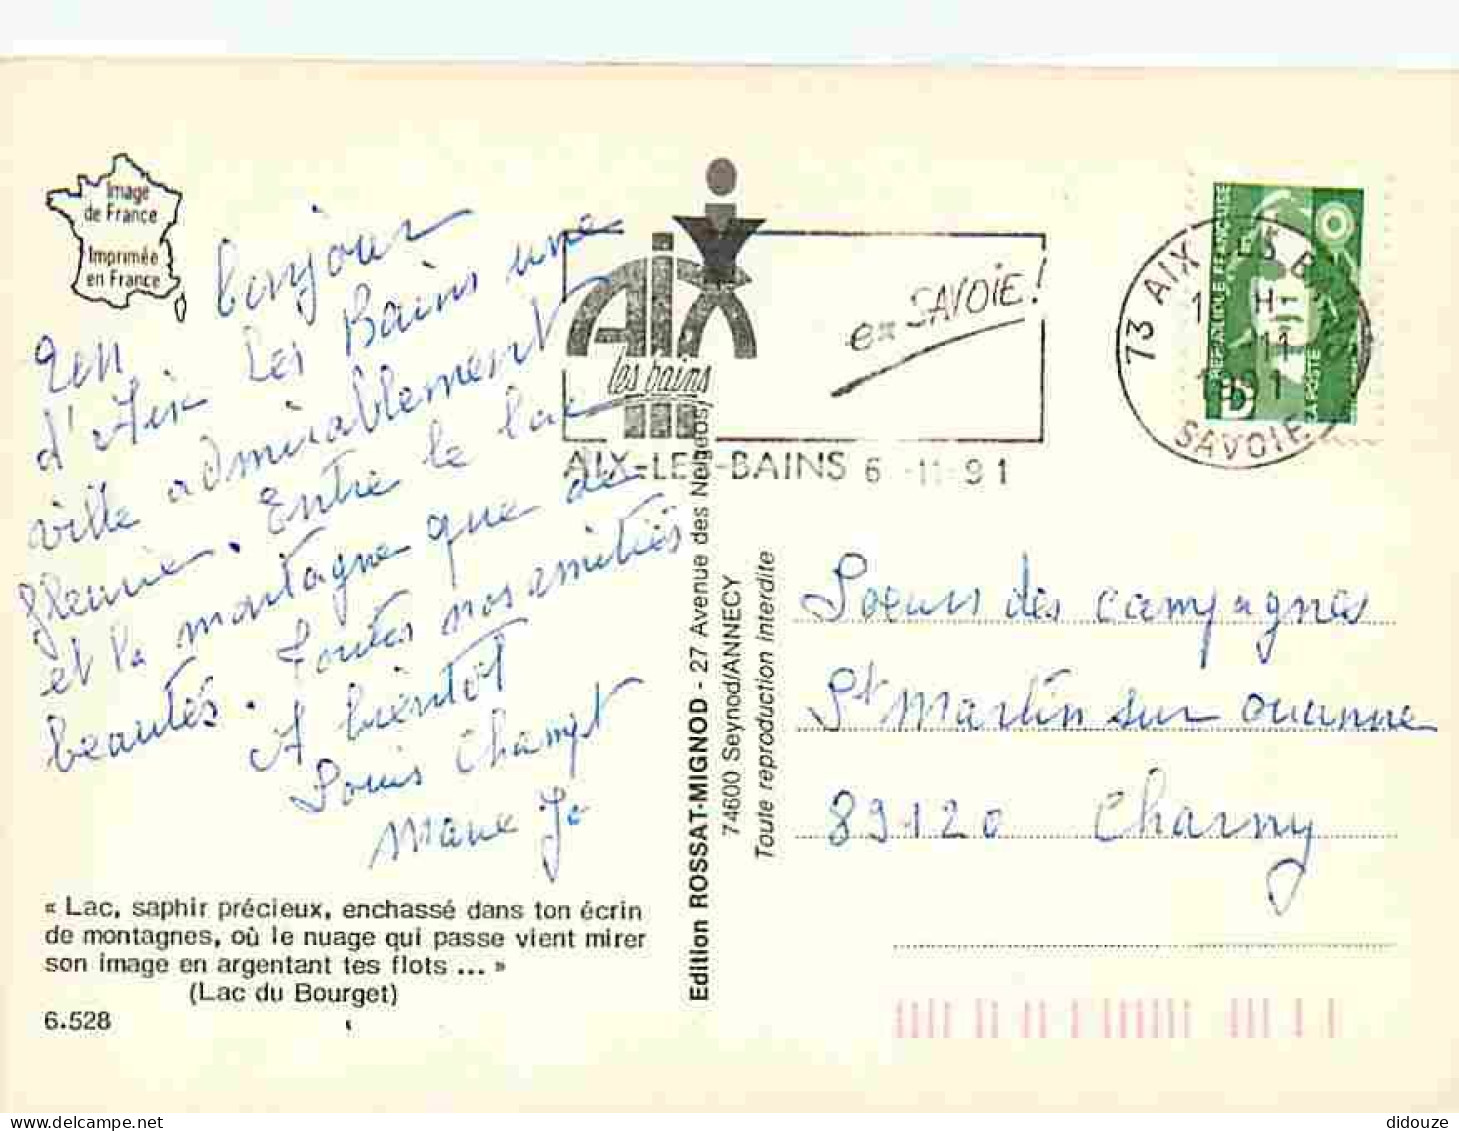 Image
de France
Imprimée
en France
Un bonjour
d'Aix les Bains une
ville admirablement
fleurie. Entre le lac
et la montagne que de
beautés. Toutes nos amitiés
A bientôt
Louis
Marie Jo
« Lac, saphir précieux, enchassé dans ton écrin
de montagnes, où le nuage qui passe vient mirer
son image en argentant tes flots ... »
(Lac du Bourget)
6.528
Edition ROSSAT-MIGNOD - 27 Avenue des Neigeos
74600 Seynod/ANNECY
Toute reproduction interdite
Aix
les bains
en SAVOIE !
AIX-LES-BAINS 6 -11-91
73 AIX LES B
H
11
1991
SAVOIE
REPUBLIQUE FRANÇAISE
LA POSTE
D
Soeurs des campagnes
St Martin sur Ouanne
89120 Charny
didouze